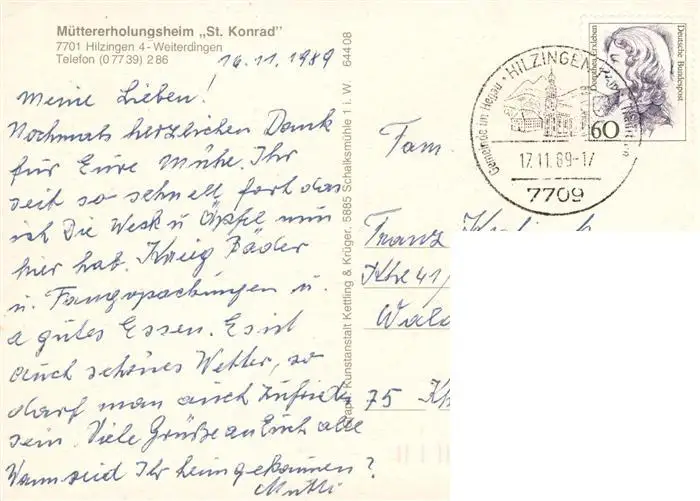 Müttererholungsheim „St. Konrad"
7701 Hilzingen 4 - Weiterdingen
Telefon (0 77 39) 2 86
16.11.1989
Meine Lieben!
Nochmals herzlichen Dank
für Eure Mühe. Ihr
seit so schnell fort das
ich die Weck u Äpfel nun
hier hab. Krieg Bäder
u. Fangopackungen u.
a gutes Essen. Es ist
auch schönes Wetter, so
darf man auch zufrieden
sein. Viele Grüße an Euch alle
Wann seid Ihr heimgekommen?
Mutti
Kunstanstalt Kettling & Krüger, 5885 Schalksmühle 1 i. W 644 08
Fam.
Franz
Khe 41/
Wald
75 Kh
HILZINGEN
Gemeinde im Hegau
17.11.89-17
7709
Dorothea Erxleben
Deutsche Bundespost
60